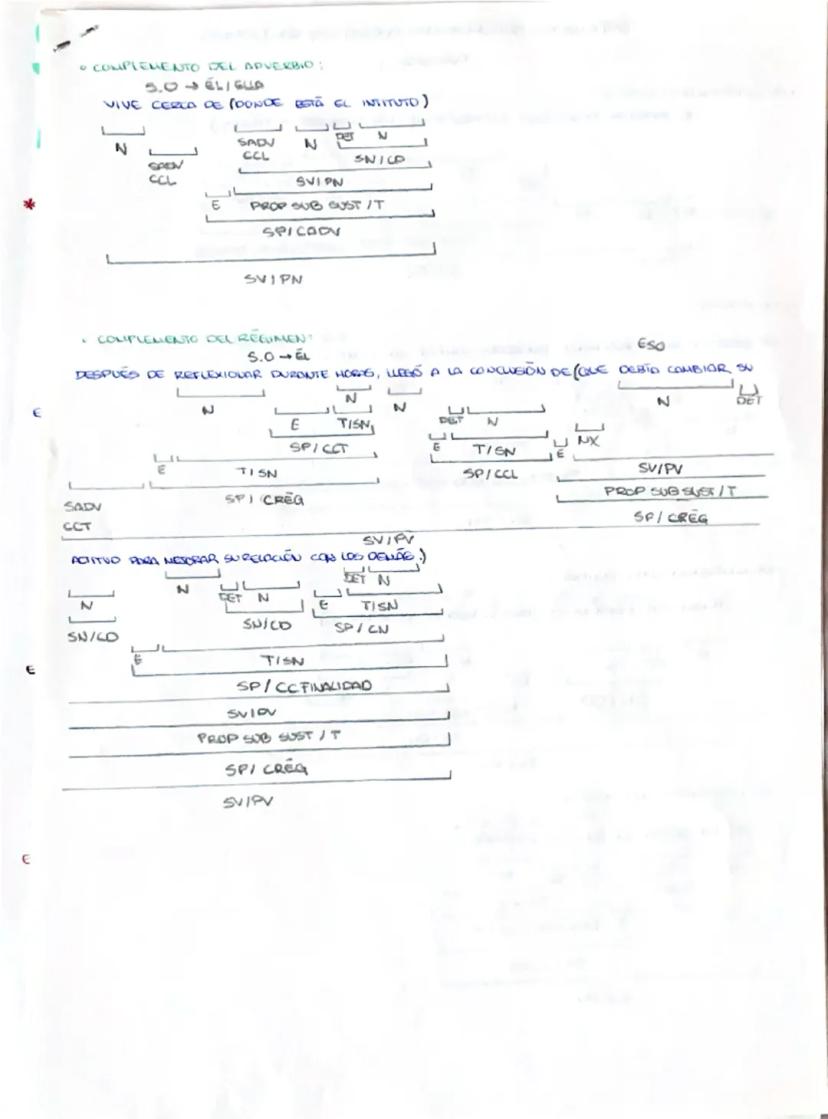 ° COMPLEMENTO DEL ADVERBIO:
S.O → ÉL/ELLA
VIVE CERCA DE (DONDE ESTÁ EL INTITUTO)
N SADV CCL SADV CCL N DET N
SN/CD
SV/PN
E PROP SUB SUST/T
SP/CADV
SV/PN
* 
• COMPLEMENTO DEL RÉGIMEN:
S.O → ÉL ESO
DESPUÉS DE REFLEXIONAR DURANTE HORAS, LLEGÓ A LA CONCLUSIÓN DE (QUE DEBÍA CAMBIAR SU
N N N N DET
E T/SN DET N
SP/CCT E T/SN E NX
E T/SN SP/CCL SV/PV
SADV CCT SP/ CRÉG PROP SUB SUST/T
SP/ CRÉG
SV/PV
ACTITUD PARA MEJORAR SU RELACIÓN CON LOS DEMÁS.)
N N DET N DET N
E T/SN
SN/CD SN/CD SP/CN
E T/SN
SP/CC FINALIDAD
SV/PV
PROP SUB SUST/T
SP/ CRÉG
SV/PV
E
E
E